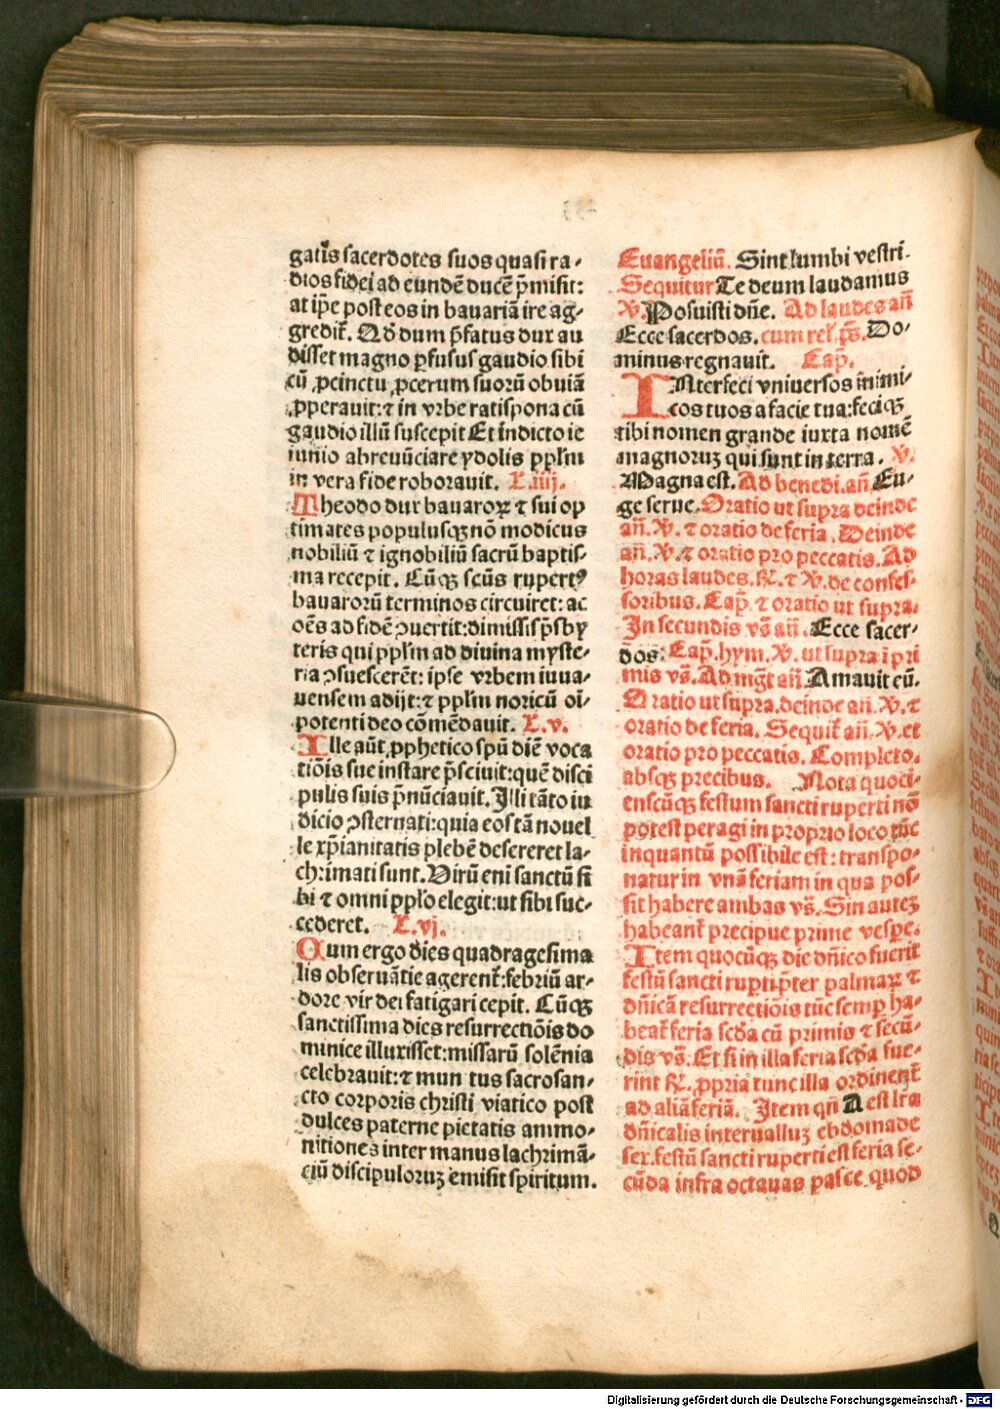 gatꝰs sacerdotes suos quasi ra-
dios fidei ad eundē ducē p̄misit:
at ip̄e post eos in bavariā ire ag-
gredit̄. Qd̄ dum p̄fatus dux au
disset magno ꝑfusus gaudio sibi
cū ꝓcinctu ꝓcerum suorū obuiā
ꝓperauit: ⁊ in vrbe ratispona cū
gaudio illū suscepit Et indicto ie
iunio abrenūciare ydolis ppl̄m
in vera fide roborauit. L.iiij.
Theodo dux bauaroꝝ ⁊ sui op
timates populusqꝫ nō modicus
nobiliū ⁊ ignobiliū sacrū baptis-
ma recepit. Cūqꝫ scūs rupertꝰ
bauarorū terminos circuiret: ac
oēs ad fidē ꝯuertit: dimissis p̄sby
teris qui ppl̄m ad diuina myste-
ria ꝯsuescerēt: ipse vrbem iuua-
uensem adijt: ⁊ ppl̄m noricū oī-
potenti deo cōmēdauit. L.v.
Ille aūt ꝓphetico spū diē voca
tiōis sue instare p̄sciuit: quē disci
pulis suis p̄nūciauit. Illi tāto iu
dicio ꝯsternati: quia eos tā nouel
le xp̄ianitatis plebē desereret la-
chrimati sunt. Virū eni sanctū si
bi ⁊ omni ppl̄o elegit: ut sibi suc-
cederet. L.vj.
Quin ergo dies quadragesima
lis obseruātie agerent̄: febriū ar-
dore vir dei fatigari cepit. Cūqꝫ
sanctissima dies resurrectiōis do
minice illuxisset: missarū solēnia
celebrauit: ⁊ mun tus sacrosan-
cto corporis christi viatico post
dulces paterne pietatis ammo-
nitiones inter manus lachrimā-
ciū discipuloruꝫ emisit spiritum.
Euangeliū. Sint lumbi vestri.
Sequitur Te deum laudamus
℣. Posuisti dn̄e. Ad laudes an̄
Ecce sacerdos. cum rel̄. ps̄. Do-
minus regnauit. Cap̄.
INterfeci vniuersos inimi-
cos tuos a facie tua: feciqꝫ
tibi nomen grande iuxta nomē
magnoruꝫ qui sunt in terra. ℣.
Magna est. Ad benedi. an̄ Eu-
ge serue. Oratio ut supra deinde
an̄. ℣. ⁊ oratio de feria. Deinde
an̄. ℣. ⁊ oratio pro peccatis. Ad
horas laudes. ℟. ⁊ ℣. de confes-
soribus. Cap̄. ⁊ oratio ut supra.
In secundis vs̄ an̄. Ecce sacer-
dos. Cap̄. hym. ℣. ut supra i pri
mis vs̄. Ad mḡt an̄ Amauit eū.
Oratio ut supra. deinde an̄. ℣. ⁊
oratio de feria. Sequit̄ an̄. ℣. et
oratio pro peccatis. Completo.
absqꝫ precibus. Nota quoci-
enscūqꝫ festum sancti ruperti nō
potest peragi in proprio loco tūc
inquantū possibile est: transpo-
natur in vnā feriam in qua pos-
sit habere ambas vs̄. Sin auteꝫ
habeant̄ precipue prime vespe.
Item quocūqꝫ die dn̄ico fuerit
festū sancti rupti p̄ter palmaꝝ ⁊
dn̄icā resurrectiōis tūc semꝑ ha-
beat̄ feria scd̄a cū primis ⁊ secū-
dis vs̄. Et si in illa feria scd̄a fue-
rint ℟. ꝓpria tunc illa ordinent̄
ad aliā feriā. Item qn̄ A est lr̄a
dn̄icalis interualluꝫ ebdomade
sex. festū sancti ruperti est feria se-
cūda infra octauas pasce quod
Digitalisierung gefördert durch die Deutsche Forschungsgemeinschaft - DFG